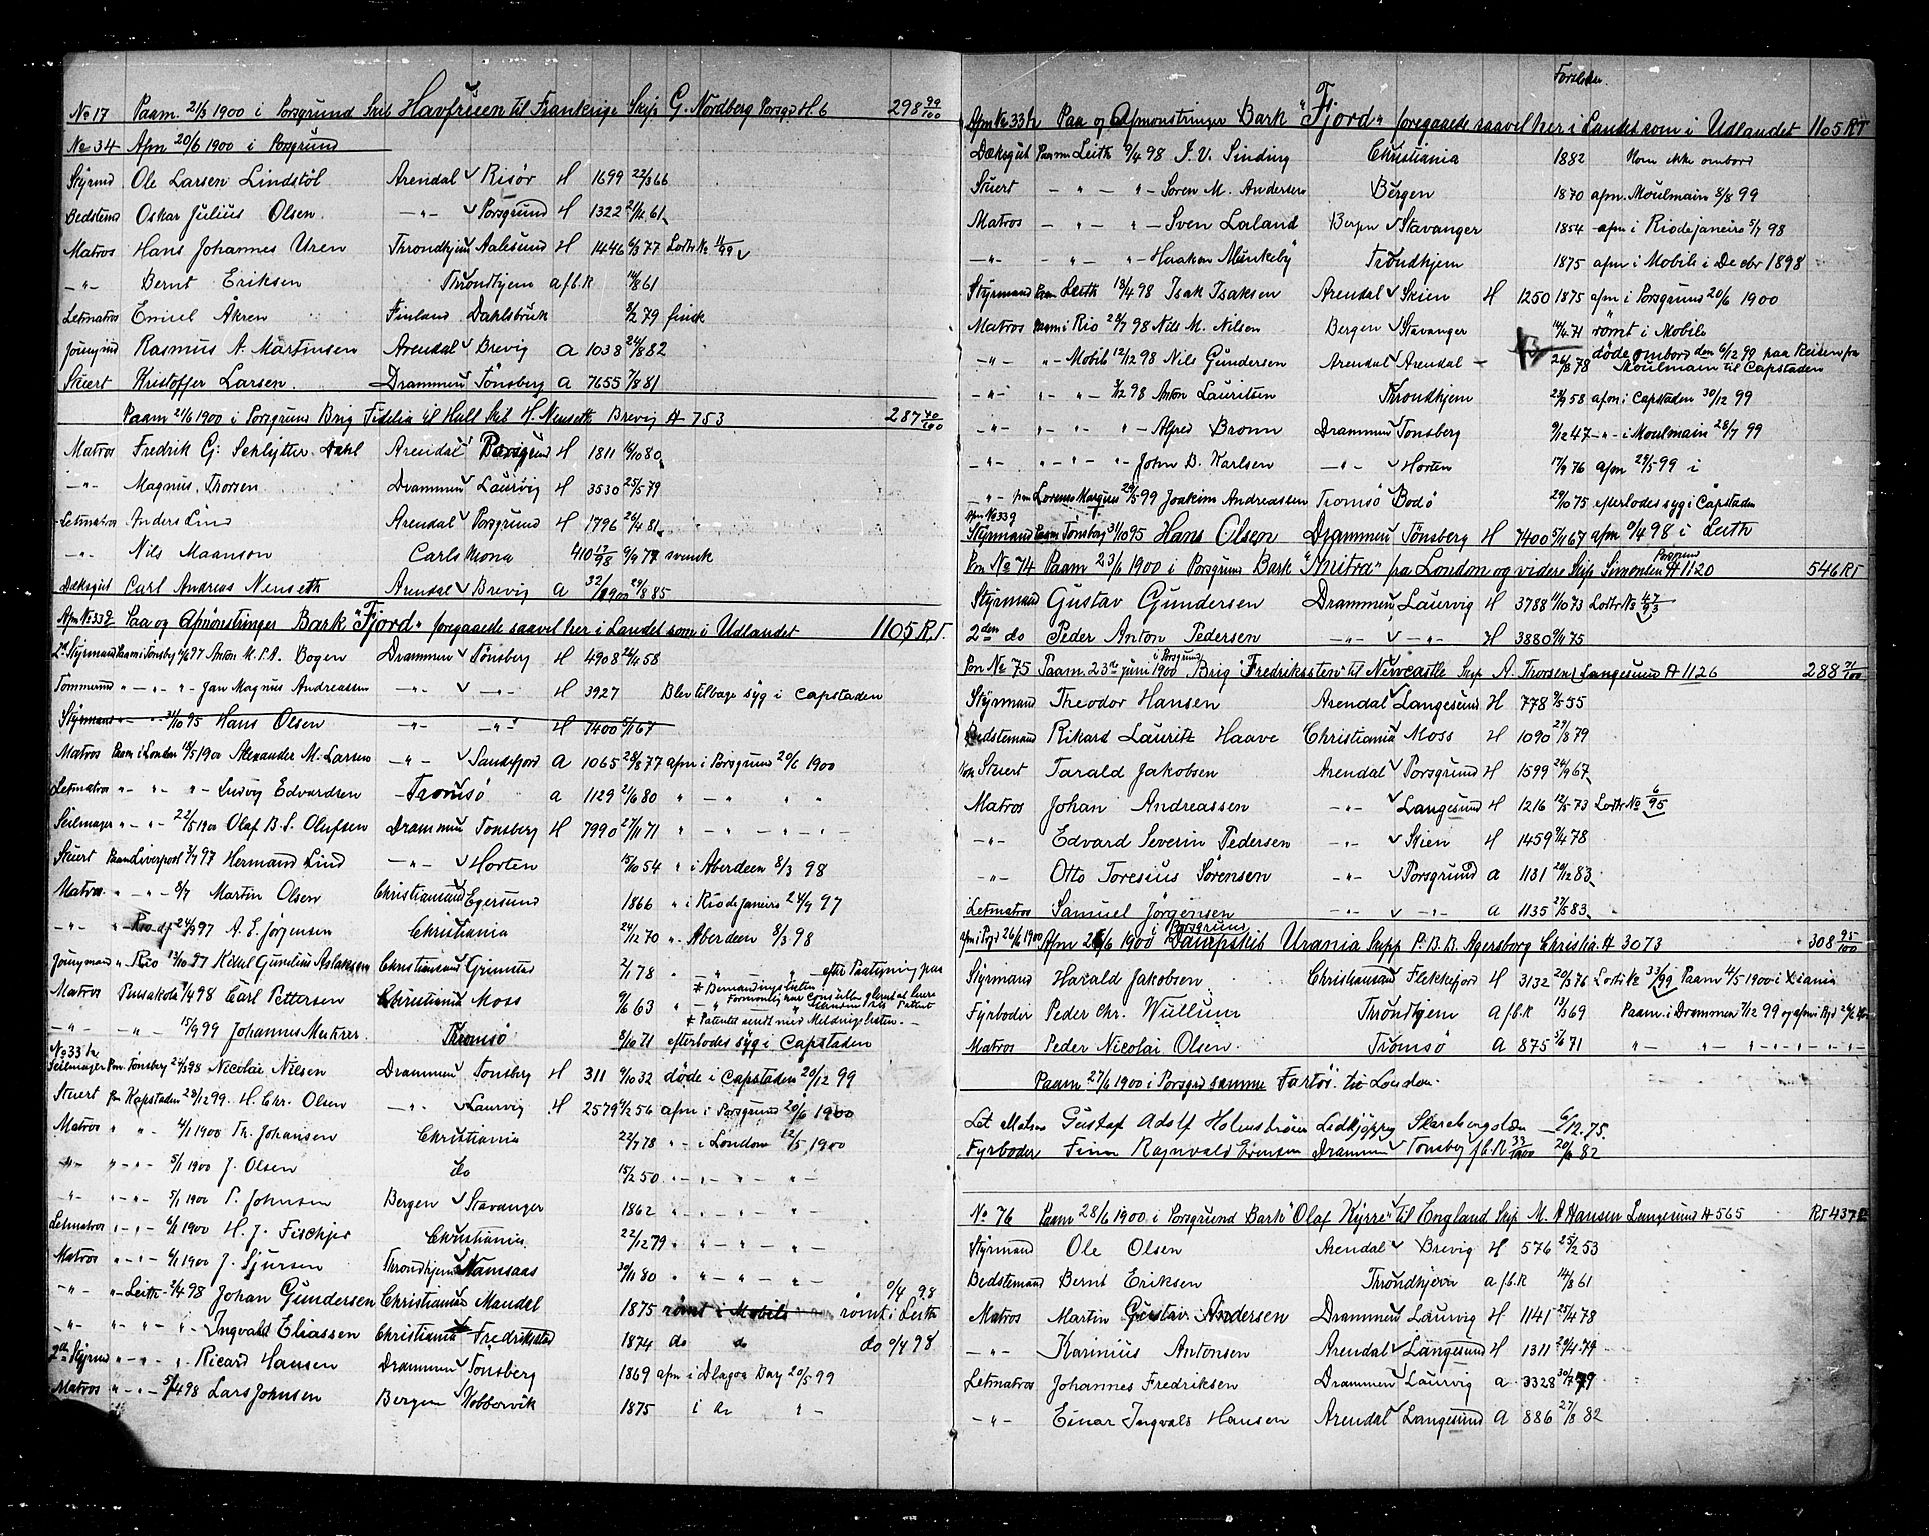 No 17 Paam. 21/3 1900 i Porsgrund Skib Havfruen til Frankerige Skip G. Nordberg Porsgr H. 6 298 99/100
No 34 Afm 20/6 1900 i Porsgrund
Styrmd Ole Larsen Lindstöl Arendal Risör H 1699 22/3 66
Bedstemd Oskar Julius Olsen. -"- Porsgrund H 1322 21/4 61
Matros Hans Johannes Uren Throndhjem Aalesund H 1446 6/3 77
-"- Bernt Eriksen Throndhjem a f b. R 14/8 61
Letmatros Emiel Åkren Finland Dahlsbruk 3/2 79 finsk
Jungmd Rasmus A. Martinsen Arendal Brevig A 1038 24/8 82
Stuert Kristoffer Larsen. Drammen Tönsberg A 7655 7/8 81
Paam 21/6 1900 i Porsgrund Brig Fidelia til Hull Skib H Nenseth Brevig H 753 287 70/100
Matros Fredrik G. Schlytter Dahl Arendal Porsgrund H 1811 16/10 80
-"- Magnus Thorsen Drammen Laurvig H 3530 25/5 79
Letmatros Anders Lind Arendal Porsgrund H 1796 26/4 81
-"- Nils Maanson Carlskrona 410 17/98 9/9 77 svensk
Dæksgut Carl Andreas Nenseth Arendal Brevig A 32/1900 29/8 85
Afm No 33g Paa og Afmönstringer Bark "Fjord" foregaaede saavel her i Landet som i Udlandet 1105 R.T.
2d Styrmand Paam i Tönsbg 97 Anton M. P. A. Bogen Drammen Tönsberg H 4908 24/4 58
Tömmermd -"- Jan Magnus Andreassen -"- -"- H 3927 Blev tilbage syg i Capstaden
Styrmand -"- 31/10 95 Hans Olsen -"- -"- H 7400 5/11 67
Matros Paam i London 18/5 1900 Alexander M. Larsen -"- Sandefjord A 1065 28/8 77 afm i Porsgrund 20/6 1900
Letmatros " - " - " Ludvig Edvardsen Tromsö a 1129 21/6 80 " - " " "
Seilmager " - " - 22/5 1900 Olaf B. S. Olufsen Drammen Tonsberg H 7990 27/11 71 " - " - " - " -
Stuert Paam Liverpool 3/7 97 Hermand Lind -"- Horten 15/10 54 " i Aberdeen 8/3 98
Matros " - " - 8/7 Martin Olsen Christiansand Egersund 1866 " i Rio de Janeiro 24/9 97
-"- " Rio dJ 24/9 97 A. E. Jörgensen Christiania 24/12 70 " Aberdeen 8/3 98
Jungmand " Rio 13/10 97 Gundius Aslaksen Christiansand Grimstad 2/1 78 " - " - " - efter Paategning paa
* Bemandingslisten
Matros Pensakola 9/1 98 Carl Pettersen Christiania Moss 9/6 63
* Patentet sendt med Meldingslisten. -
-"- -"- 15/9 99 Johannes Thromsö 8/10 71 efterlodes syg i Capstaden
No 33 h
Seilmager Pm. Tonsberg 24/3 98 Nicolai Nilsen Drammen Tonsberg H 311 9/10 32 döde i Capstaden 20/12 99
Stuert pm Kapstaden 28/12 99. H. Chr. Olsen -"- Laurvig H 2579 9/2 56 afm i Porsgrund 20/6 1900
Matros " " - 4/1 1900 Th. Johansen Christiania 22/7 78 " - i London 12/5 1900
-"- " - " - 5/1 1900 J. Olsen do 15/2 50 " - " - " - " -
-"- " - " - 5/1 1900 P. Johnsen Bergen Stavanger 1862 " - " - " - " -
Letmatros " - " - 6/1 1900 H. J. Fischjer Christiania 22/12 79 " - " - " - " -
Matros " - " - 6/1 1900 J. Sjursen Throndhjem Namsaas 30/11 80 " - " - " - " -
-"- " - Leith 2/4 98 Johan Gundersen Christiansand Mandal 1875 römt i Mobile römt i Leith 9/4 98
-"- " - " - " - Ingvald Eliassen Christiania Fredrikstad 1874 do do do 9/4 98
2den Styrmd " - " - " Ricard Hansen Drammen Tonsberg 1869 afm i Dlagoa Bay 20/5 99
Matros " - " - 5/4 98 Lars Johnsen Bergen Kobbervik 1875 i do " -
Fornlsker.
Afm No 33 h Paa og Afmonstringer Bark "Fjord" foregaaede saavel her i Landet som i Udlandet 1105 RT
Dæksgut Paam Leith 9/4 98 J. V. Sinding Christiania 1882 Kom ikke ombord
Stuert - " - " - Soren M. Andersen Bergen 1870 afm. Moulmain 8/8 99
Matros - " - " - Sven Laland Bergen Stavanger 1854 afm i Rio de janeiro 5/7 98
-"- " - " - Haakon Munkeby Trondhjem 1875 afm i Mobile i Decbr 1898
Styrmand Paam Leith 13/4 98 Isak Isaksen Arendal Skien H 1250 1875 afm i Porsgrund 20/6 1900
Matros Paam i Rio 28/7 98 Nils M. Nilsen Bergen Stavanger 14/4 71 römt i Mobile
-"- " - Mobile 12/12 98 Nils Gundersen Arendal Arendal - 26/8 78 döde ombord den 6/12 99 paa Reisen fra Moulmain til Capstaden
-"- " - " - 3/12 98 Anton Lauritsen Throndhjem 23/9 58 afm. i Capstaden 30/12 99
-"- " - " - " - Alfred Bronn Drammen Tonsberg 9/12 47 -"- i Moulmain 28/7 99
-"- " - " - " - John B. Karlsen -"- Horten 17/9 76 afm 29/5 99 i
-"- pm Lorenzo Marques 29/5 99 Joakim Andreassen Tromsö Bodö 29/10 75 efterlodes syg i Capstaden
Afm No 33g
Styrmand Paam Tonsberg 31/10 95 Hans Olsen Drammen Tönsberg H 7400 5/11 67 afm 9/4 98 i Leith
Pm No 74 Paam 23/6 1900 i Porsgrund Bark "Anitra" fra London og videre Skip Simonsen Porsgrund H 1120 546 RT
Styrmand Gustav Gundersen Drammen Laurvig H 3788 11/10 73 Lodts No 47/93
2den do Peder Anton Pedersen -"- -"- H 3880 9/11 75
Pm No 75 Paam. 23de juni 1900 i Porsgrund Brig "Fredriksten" til Newcastle Skip A. Thorsen Langesund H 1126 288 71/100
Styrmand Theodor Hansen Arendal Langesund H 778 9/5 55
Bedstemand Rikard Lauritz Haave Christiania Moss H 1090 29/8 79
Kok Stuert Tarald Jakobsen Arendal Porsgrund H 1599 24/9 67
Matros Johan Andreassen -"- Langesund H 1216 12/5 73 Lodts No 6/95
-"- Edvard Severin Pedersen -"- Skien H 1459 9/4 78
-"- Otto Toresius Sörensen -"- Porsgrund a 1131 20/12 83
Letmatros Samuel Jörgensen -"- -"- A 1135 27/5 83
Afm i Prsgr 26/6 1900 Afm 26/6 1900 i Porsgrund Dampskib Urania Skipp P. B. B. Agersborg Christia. H 3073 308 95/100
Styrmand Harald Jakobsen Christiansand Flekkefjord H 3132 20/3 76 Lodts No 33/99 Paam 4/5 1900 i Xiania
Fyrböder Peder Chr. Wullum Throndhjem A f b. R 13/3 69 Paam. i Drammen 7/12 99 og afm i
Matros Peder Nicolai Olsen. Tromsö A 875 5/6 71 " - " - " - " - " -
Paam 27/6 1900 i Porsgrd samme Fartöi til London.
Let Matros Gustaf Adolf Lidkjöpping 6/12. 75.
Fyrböder Finn Ragnvald Drammen Tönsberg f. b. R 33/1900 20/6 82
No 76 Paam 28/6 1900 i Porsgrund Bark "Olaf Kyrre" til England Skip M. A Hansen Langesund H 565 RT 437
Styrmand Ole Olsen Arendal Brevig H 576 25/2 53
Bedstemand Bernt Eriksen Throndhjem a f b. R 14/8 61
Matros Martin Gustav Andersen Drammen Laurvig H 1141 25/4 78
-"- Karinius Antonsen Arendal Langesund H 1311 20/4 79
Letmatros Johannes Fredriksen Drammen Laurvig a 3328 30/7 79
-"- Einar Ingvald Hansen Arendal Langesund A 886 27/8 82